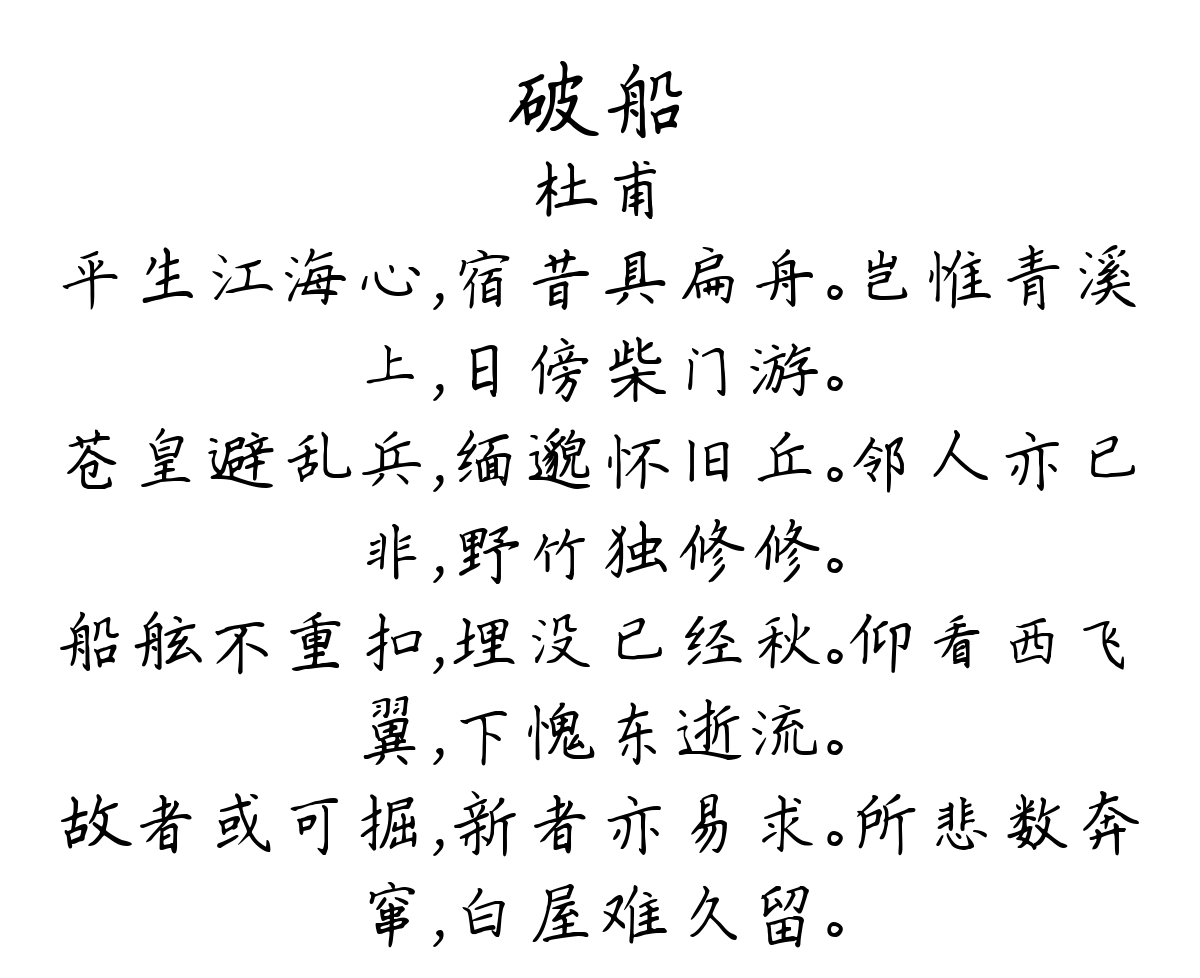 破船
杜甫
平生江海心,宿昔具扁舟。岂惟青溪
上,日傍柴门游。
苍皇避乱兵,缅邈怀旧丘。邻人亦已
非,野竹独修修。
船舷不重扣,埋没已经秋。仰看西飞
翼,下愧东逝流。
故者或可掘,新者亦易求。所悲数奔
窜,白屋难久留。